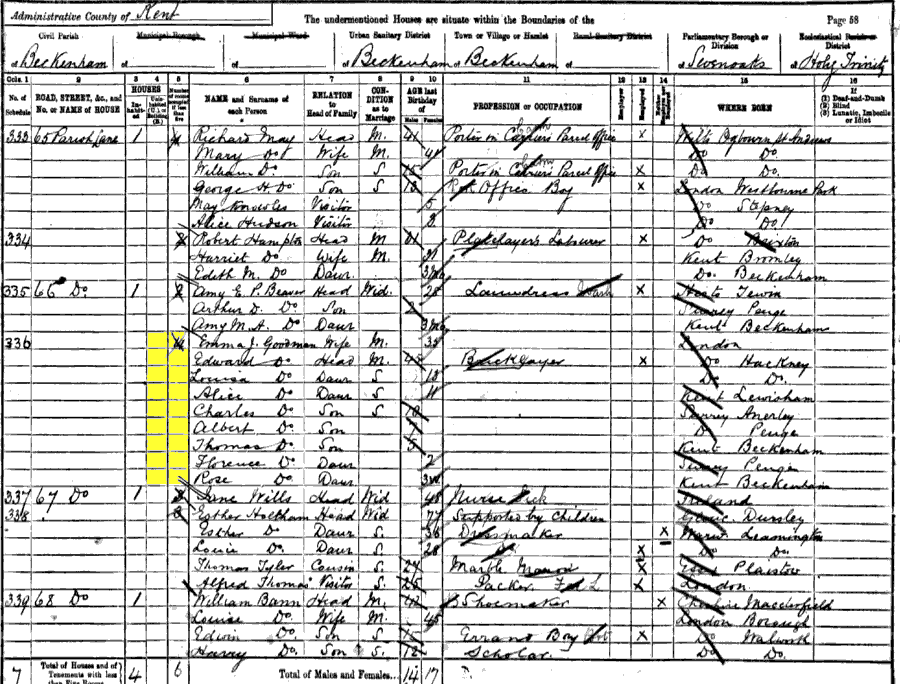 Administrative County of Kent
The undermentioned Houses are situate within the Boundaries of the
Page 58
Civil Parish
Municipal Borough
Municipal Ward
Urban Sanitary District
Town or Village or Hamlet
Rural Sanitary District
Parliamentary Borough or Division
Ecclesiastical Parish or District
of Beckenham of of of Beckenham of Beckenham of of Sevenoaks of Holy Trinity
Cols. 1 2 3 4 5 6 7 8 9 10 11 12 13 14 15 16
No. of Schedule
ROAD, STREET, &c., and No. or NAME of HOUSE
HOUSES
In-habited
Number of rooms occupied if less than five
NAME and Surname of each Person
RELATION to Head of Family
CON-DITION as to Marriage
AGE last Birthday of
Males Females
PROFESSION or OCCUPATION
Employer
Employed
WHERE BORN
(1) Deaf-and-Dumb
(2) Blind
(3) Lunatic, Imbecile or Idiot
333 65 Parish Lane 1 4 Richard May Head M. 41 Porter in Parcel Office x Wilts Ogbourne St Andrews
Mary Do Wife M. Do Do.
William Do Son S 15 Porter in Parcel Office x Do Do.
George H. Do Son S Office Boy x London Westbourne Park
May Knowles Visitor 5 Do Stepney
Alice Hudson Visitor 3 Do Do
334 2 Robert Hampton Head M 31 Platelayers Labourer x Do Brixton
Harriet Do Wife M. 31 Kent Bromley
Edith M. Do Daur Do. Beckenham
335 66 Do. 1 2 Amy E. P. Beaver Head Wid. 28 Laundress x Herts Tewin
Arthur D. Do. Son 2 Surrey Penge
Amy M. A. Do Daur Kent Beckenham
336 4 Emma J. Goodman Wife M. London
Edward Do Head M. Bricklayer x Do Hackney
Louisa Do Daur S Do Do.
Alice Do Daur S 11 Kent Lewisham
Charles Do Son S 10 Surrey Anerley
Albert Do Son 7 Do Penge
Thomas Do Son 5 Kent Beckenham
Florence Do Daur 2 Surrey Penge
Rose Do Daur Kent Beckenham
337 67 Do 1 Jane Wills Head Wid 48 Nurse Sick Ireland
338 3 Esther Holtham Head Wid 77 Supported by Children Dursley
Esther Do Daur S. 36 Dressmaker x Warw. Leamington
Louie Do. Daur S 28 Do x Do Do.
Thomas Tyler Cousin S. 24 Marble Mason x Essex Plaistow
Alfred Thomas Visitor S. 25 Packer x London
339 68 Do 1 William Bann Head M. 42 Shoemaker x Cheshire Macclesfield
Louisa Do Wife M. 45 London Borough
Edwin Do. Son S. 15 Errand Boy x Do Walworth
Harry Do. Son S. 12 Scholar Do Do.
7 Total of Houses and of Tenements with less than Five Rooms 4 6 Total of Males and Females... 14 17